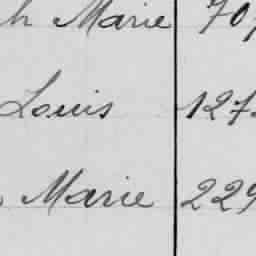 h Marie 707
Louis 127
Marie 229